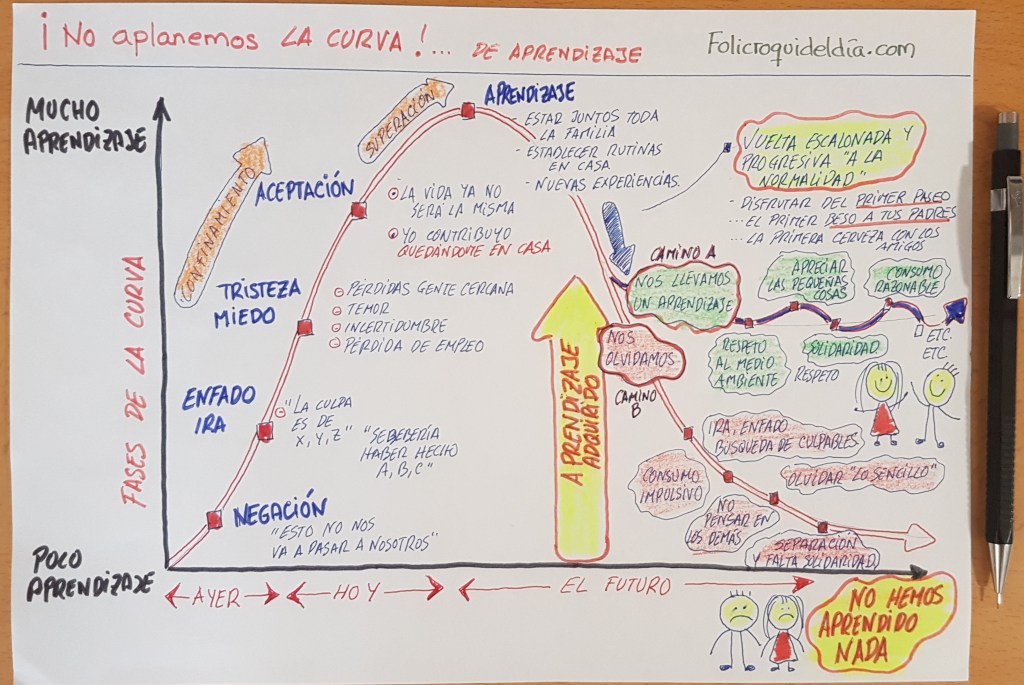 ¡No aplanemos LA CURVA!... DE APRENDIZAJE
Folicroquideldia.com
MUCHO
APRENDIZAJE
FASES DE LA CURVA
POCO
APRENDIZAJE
CONFINAMIENTO
SUPERACIÓN
NEGACIÓN
"ESTO NO NOS
VA A PASAR A NOSOTROS"
ENFADO
IRA
"LA CULPA
ES DE
X, Y, Z"
"SE DEBERÍA
HABER HECHO
A, B, C"
TRISTEZA
MIEDO
PÉRDIDAS GENTE CERCANA
TEMOR
INCERTIDUMBRE
PÉRDIDA DE EMPLEO
ACEPTACIÓN
LA VIDA YA NO
SERÁ LA MISMA
YO CONTRIBUYO
QUEDÁNDOME EN CASA
APRENDIZAJE
- ESTAR JUNTOS TODA
LA FAMILIA
- ESTABLECER RUTINAS
EN CASA
- NUEVAS EXPERIENCIAS.
VUELTA ESCALONADA Y
PROGRESIVA "A LA
NORMALIDAD"
- DISFRUTAR DEL PRIMER PASEO
... EL PRIMER BESO A TUS PADRES
... LA PRIMERA CERVEZA CON LOS
AMIGOS
APRENDIZAJE
ADQUIRIDO
CAMINO A
NOS LLEVAMOS
UN APRENDIZAJE
APRECIAR
LAS PEQUEÑAS
COSAS
CONSUMO
RAZONABLE
RESPETO
AL MEDIO
AMBIENTE
SOLIDARIDAD
RESPETO
ETC.
ETC.
NOS
OLVIDAMOS
CAMINO
B
IRA, ENFADO
BÚSQUEDA DE CULPABLES
CONSUMO
IMPULSIVO
OLVIDAR "LO SENCILLO"
NO
PENSAR EN
LOS DEMÁS
SEPARACIÓN
Y FALTA SOLIDARIDAD
AYER
HOY
EL FUTURO
NO HEMOS
APRENDIDO
NADA